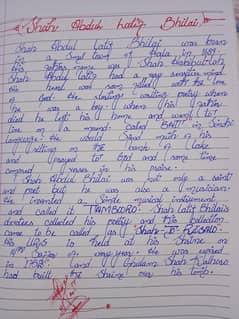 Shah Abdul Latif Bhitai
Shah Abdul Latif Bhitai was born
in a small town Hala in 1689
his father name was Shah Habibullah
Shah Abdul Latif had a very sensitive mind
his heart was soon filled with the love
of God. He started writing poetry when
he was a boy. when his father
died he left his home and went to
live on a mound called BHIT in Sindhi
language. He would spend much of his
sitting on the bank of lake
and prayed to God and some time
composed verses in his praise.
Shah Abdul Latif Bhitai was not only a saint
and poet but he was also a musician.
He invented a Sindhi musical instrument
and called it TAMBOORO. Shah Latif Bhitai's
devotees collected his poetry and this collection
came to be called as Shah-JO-RISALO.
his URS is held at his shrine on
14th Safar of every year. He was buried
in (and Ghulam Shah Kalhoro
had built the shrine over his tomb.